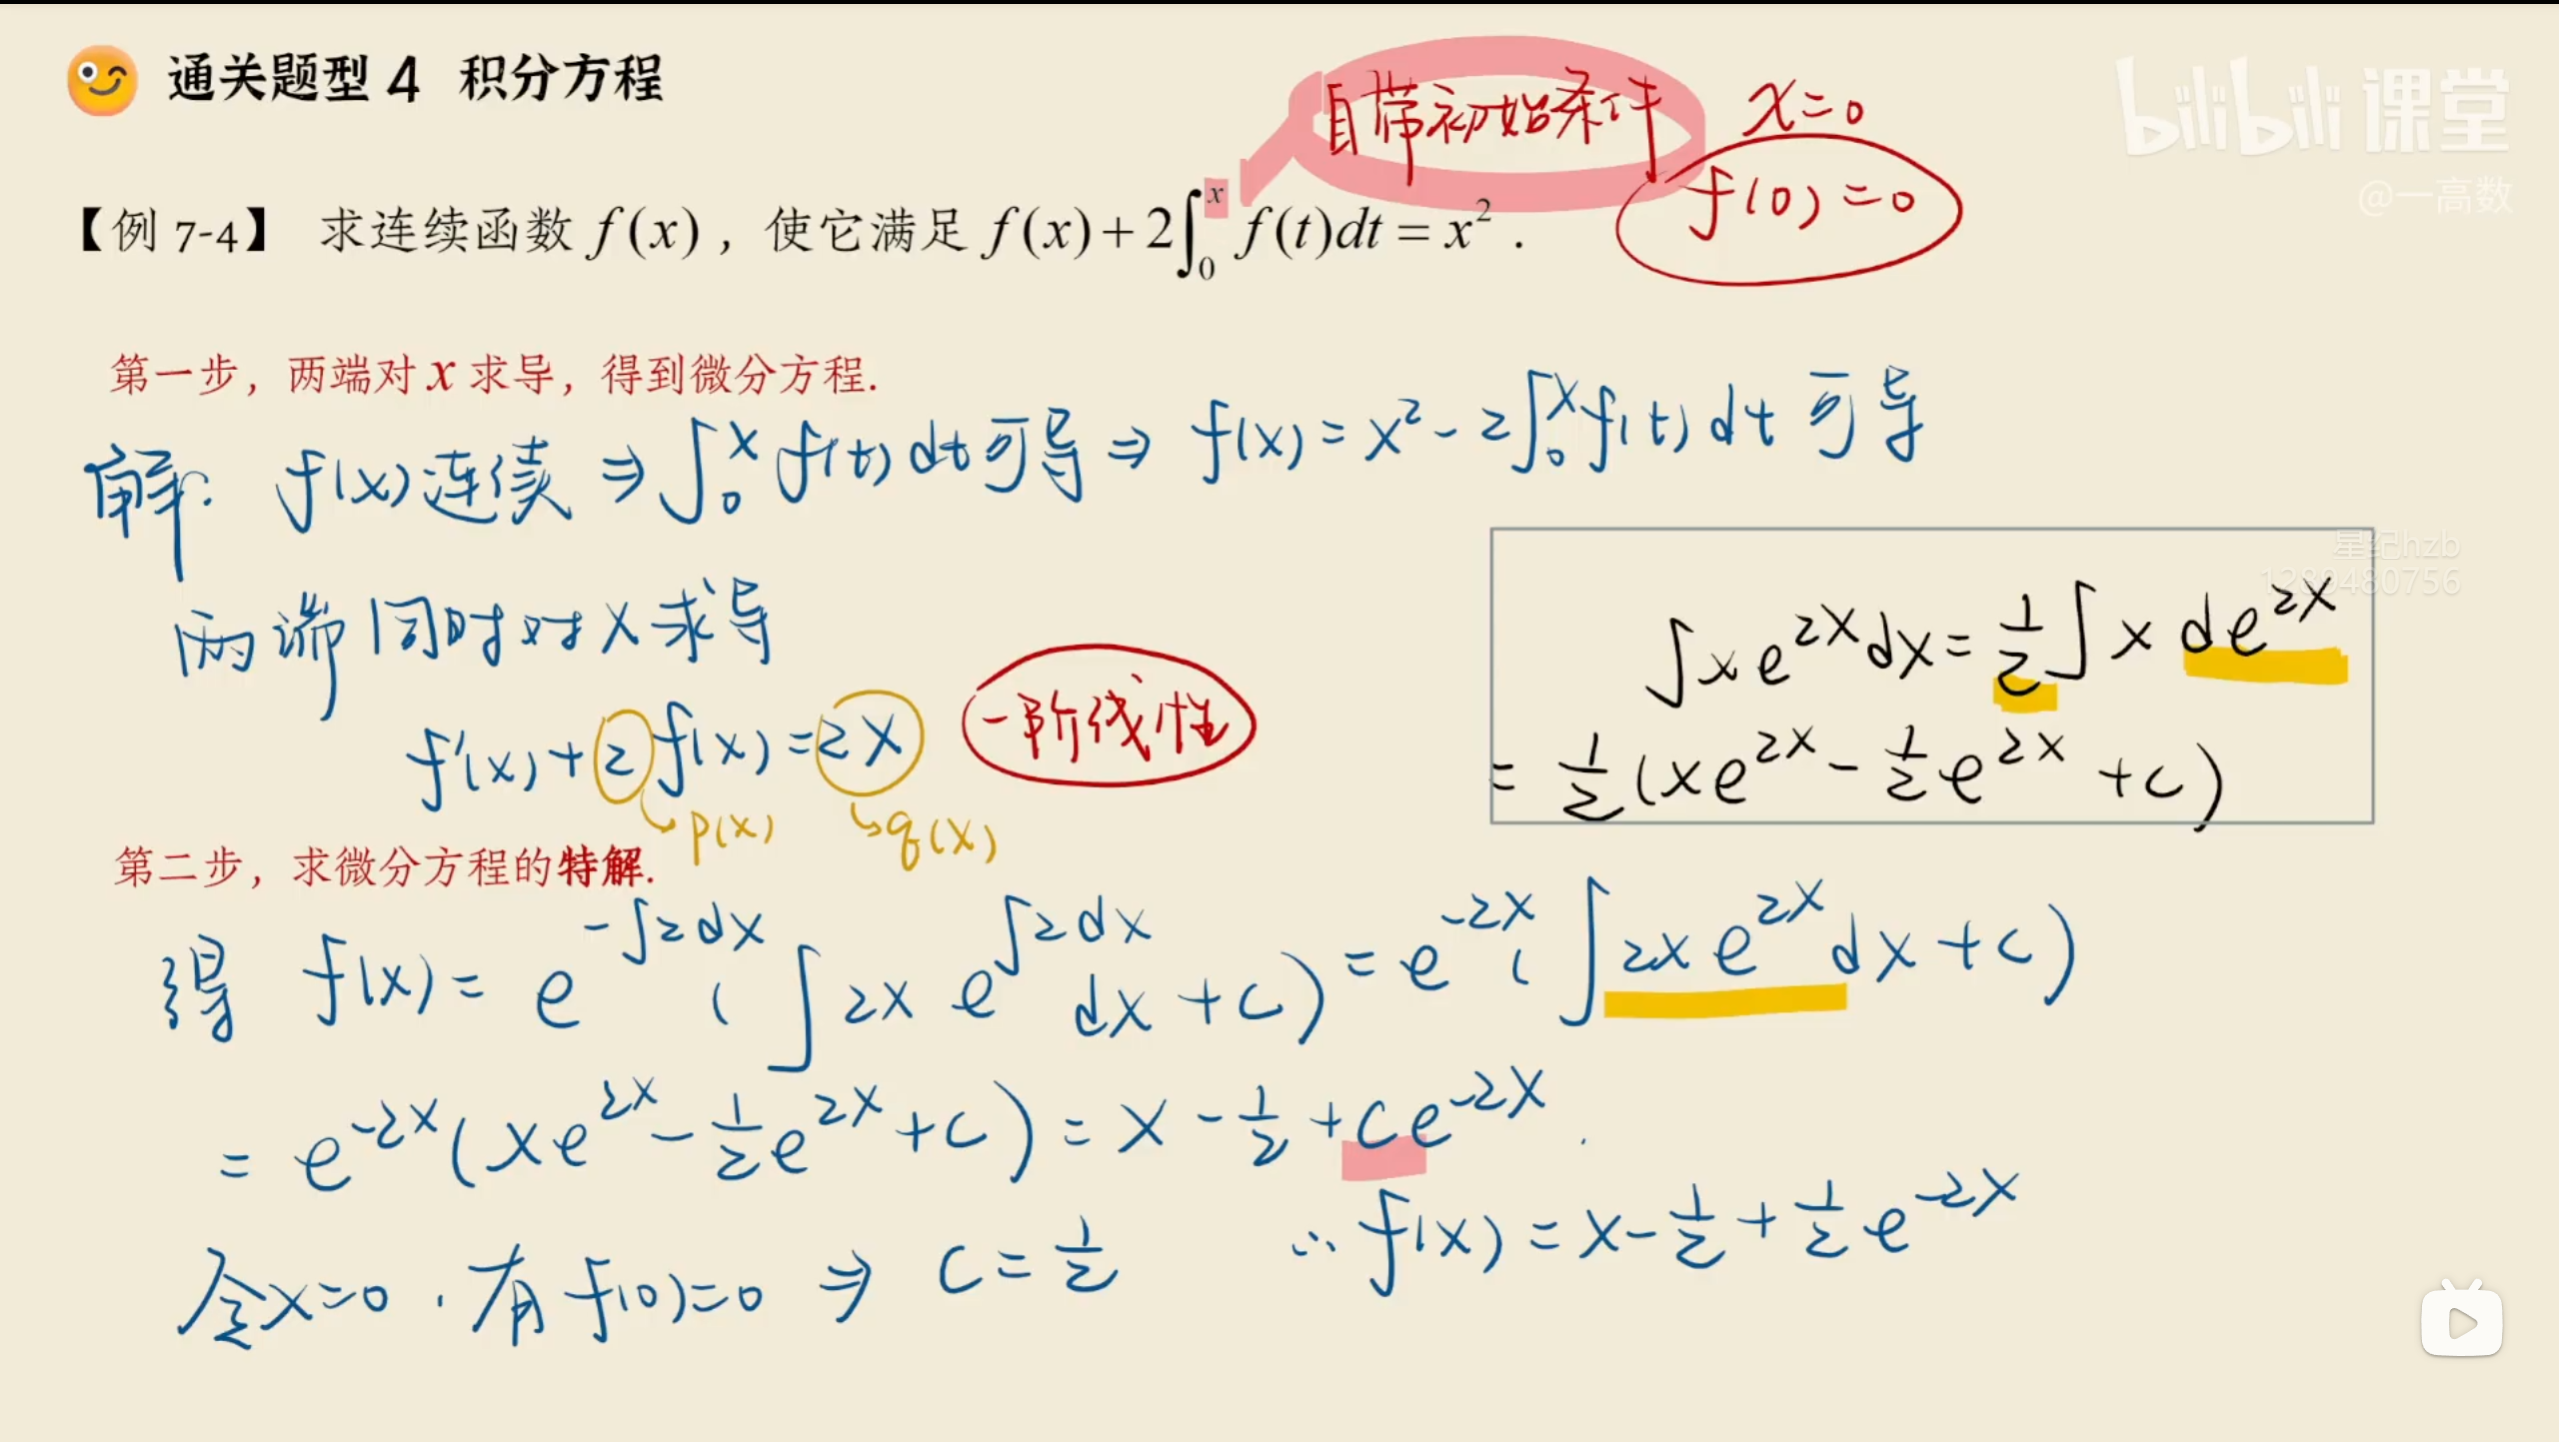 通关题型 4 积分方程
自带初始条件 x=0
f(0)=0
bilibili 课堂
@一高数
【例 7-4】 求连续函数 f(x)，使它满足 f(x)+2∫₀ˣ f(t)dt = x².
第一步，两端对 x 求导，得到微分方程.
解: f(x)连续 ⇒ ∫₀ˣ f(t)dt可导 ⇒ f(x)=x²-2∫₀ˣf(t)dt 可导
星纪hzb
1289480756
两端同时对x求导
∫xe^{2x}dx = 1/2∫x de^{2x}
= 1/2(xe^{2x} - 1/2e^{2x} + c)
f'(x)+2f(x)=2x 一阶线性
p(x) q(x)
第二步，求微分方程的特解.
得 f(x)= e^{-∫2dx}(∫2x e^{∫2dx}dx+c) = e^{-2x}(∫2xe^{2x}dx+c)
= e^{-2x}(xe^{2x} - 1/2e^{2x}+c) = x - 1/2 + ce^{-2x}.
令x=0, 有f(0)=0 ⇒ c=1/2 ∴ f(x)=x-1/2+1/2e^{-2x}